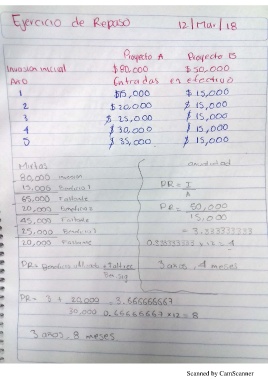 Ejercicio de Repaso 12/Mar/18
Proyecto A Proyecto B
Invasion inicial $80,000 $50,000
Entradas en efectivo
1 $15,000 $15,000
2 $20,000 $15,000
3 $25,000 $15,000
4 $30,000 $15,000
5 $35,000 $15,000
Mixtos
anualidad
80,000
15,000
65,000 Faltante
20,000
45,000 Faltante
25,000
20,000 Faltante
PR= I
A
PR= 50,000
15,000
= 3.333333333
0.333333333 x 12 = 4
3 años, 4 meses
PR= 3 + 20,000 = 3.666666667
30,000 0.666666667 x 12 = 8
3 años, 8 meses
Scanned by CamScanner